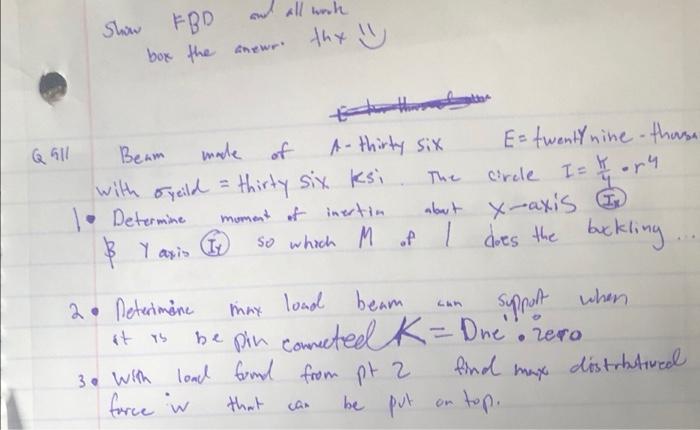 Show FBD and all work
box the answr. thx
Q 911 Beam made of A-thirty six E = twenty nine - thousa
with σyeild = thirty six ksi. The circle I = π/4 · r⁴
1. Determine moment of inertia about x-axis Ix
& Y axis Iy so which M of I does the buckling ...
2. Deterimine max load beam can support when
it is be pin connected K = One "." zero
3. With load fornd from pt 2 find max distributived
force w that can be put on top.